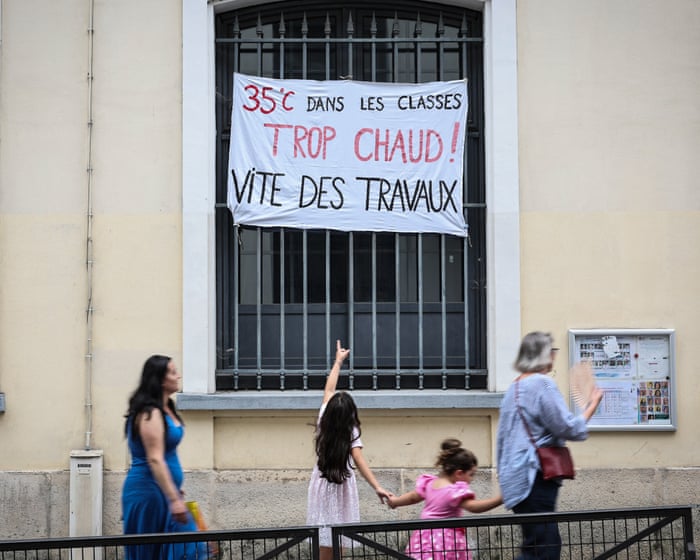 35°C DANS LES CLASSES
TROP CHAUD !
VITE DES TRAVAUX